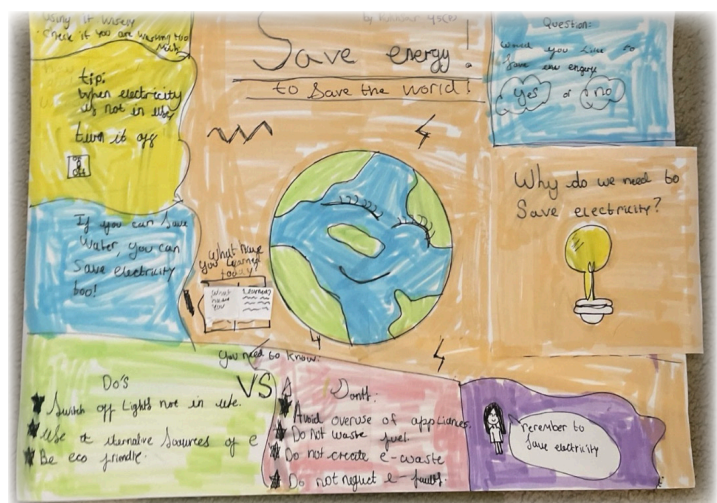 Using it wisely
check if you are wasting too
much
tip:
when electricity
is not in use,
turn it off
off
If you can save
Water, you can
Save electricity
too!
by
Save energy!
to save the world!
What have
you learned
today?
What
have
you
Learned
Question:
Would you like to
save the
Yes or no
Why do we need to
Save electricity?
You need to know:
Do's
Switch off lights not in use.
Use sources of e
Be eco friendly.
VS
Dont.
Avoid overuse of appliances.
Do not waste fuel.
Do not create e-waste
Do not neglect e-faults.
remember to
Save electricity